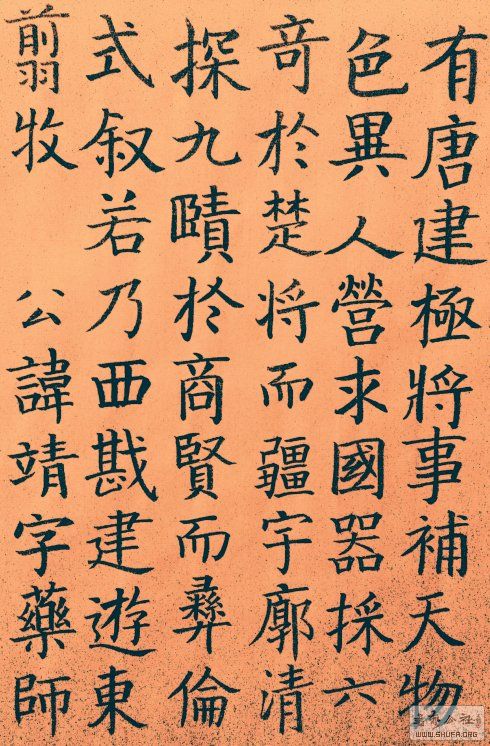 有唐建極將事補天物
色異人營求國器採六
竒於楚將而疆宇廓清
探九賾於商賢而彝倫
式叙若乃西戡建遊東
翦牧 公諱靖字藥師
书法公社
WWW.SHUFA.ORG